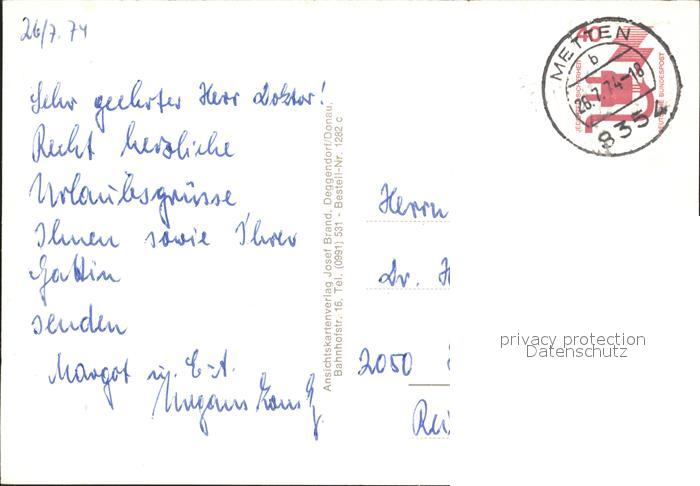 26/7. 74
Sehr geehrter Herr Doktor!
Recht herzliche
Urlaubsgrüsse
Ihnen sowie Ihrer
Gattin
senden
Margot u.
Ansichtskartenverlag Josef Brand, Deggendorf/Donau,
Bahnhofstr. 16, Tel. (0991) 531 - Bestell-Nr. 1282 c
METTEN
b
26.7.74-18
8354
40
JEDERZEIT SICHERHEIT
DEUTSCHE BUNDESPOST
Herrn
Dr. H
2050
Rei
privacy protection
Datenschutz